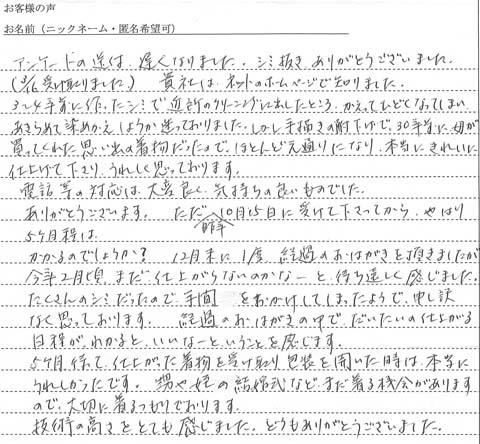 お客様の声
お名前（ニックネーム・匿名希望可）
アンケートの返信 遅くなりました。シミ抜き ありがとうございました。
(3/6 受け取りました) 貴社は、ネットのホームページで知りました。
3〜4年前に作ったシミで近所のクリーニングに出したところ、かえってひどくなってしまい
あきらめて染めかえしようか迷っておりました。しかし手描きの附下げで、30年前に母が
買ってくれた思い出の着物だったので、ほとんど元通りになり、本当にきれいに
仕上げて下さり、うれしく思っております。
電話等の対応は、大変良く、気持ちの良いものでした。
ありがとうございます。 ただ 昨年 10月15日に受けて下さってから、やはり
5ヶ月程は
かかるのでしょうか？ 12月末に1度、経過のおはがきを頂きましたが
今年2月頃、まだ仕上がらないのかなーと、待ち遠しく感じました。
たくさんのシミだったので、手間をおかけしてしまったようで、申し訳
なく思っております。 経過のおはがきの中で、だいたいの仕上がる
日程がわかると、いいなーということを感じます。
5ヶ月待って、仕上がった着物を受け取り、包装を開いた時は、本当に
うれしかったです。 甥や姪の結婚式など、まだ着る機会があります
ので、大切に着るつもりでおります。
技術の高さをとても感じました。どうもありがとうございました。